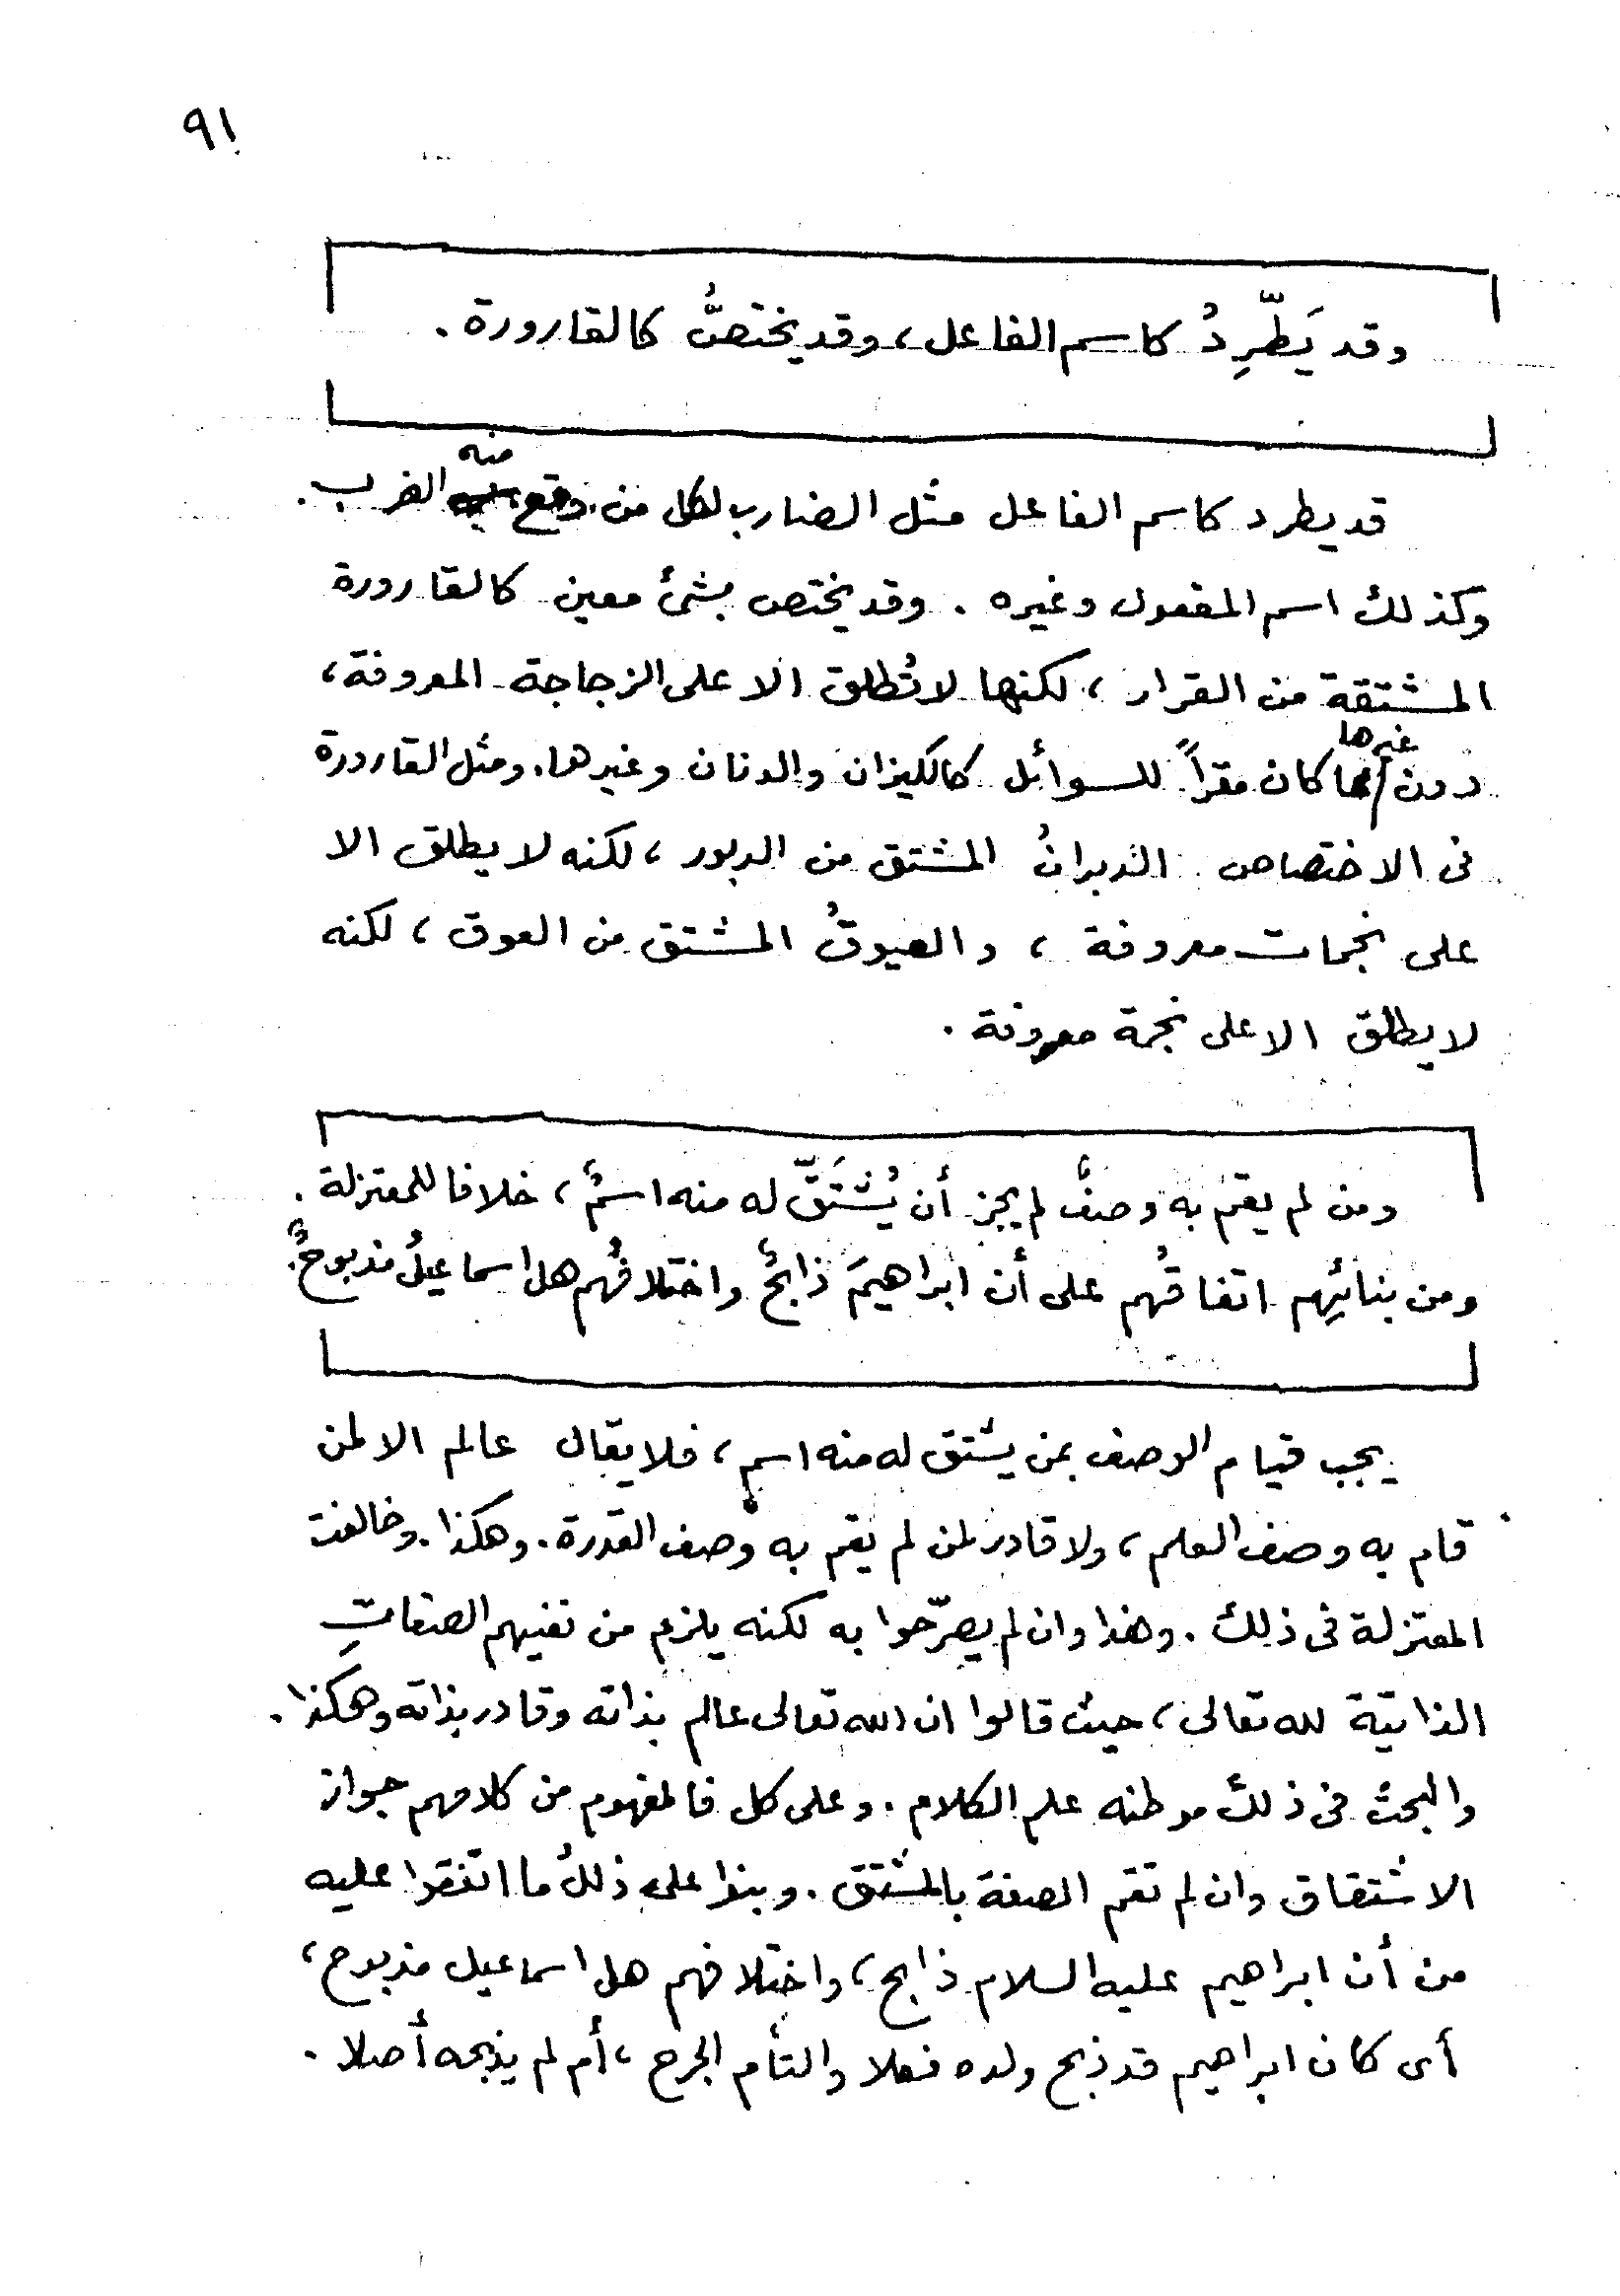 ٩١
وقد يَطّرِدُ كاسم الفاعل، وقد يختصُّ كالقارورة.
قد يطرد كاسم الفاعل مثل الضارب لكل من وقع منه الضرب.
وكذلك اسم المفعول وغيره. وقد يختص بشئ معين كالقارورة
المشتقة من القرار، لكنها لا تُطلق الا على الزجاجة المعروفة،
دون غيرها مما كان مقراً للسوائل كالكيزان والدنان وغيرها. ومثل القارورة
فى الاختصاص الدبرانُ المشتق من الدبور، لكنه لا يطلق الا
على نجمات معروفة، والعيوقُ المشتق من العوق، لكنه
لا يطلق الا على نجمة معروفة.
ومن لم يقم به وصفٌ لم يجز أن يُشتَقَّ له منه اسمٌ، خلافا للمعتزلة.
ومن بنائِهم اتفاقُهم على أن ابراهيمَ ذابحٌ واختلافُهم هل اسماعيلُ مذبوحٌ.
يجب قيام الوصف بمن يشتق له منه اسم، فلا يقال عالم الا لمن
قام به وصف العلم، ولا قادر لمن لم يقم به وصف القدرة. وهكذا. وخالفت
المعتزلة فى ذلك. وهذا وان لم يصرّحوا به لكنه يلزم من نفيهم الصفاتِ
الذاتيّة لله تعالى، حيث قالوا ان الله تعالى عالم بذاته وقادر بذاته وهكذا.
والبحث فى ذلك موطنه علم الكلام. وعلى كل فالمفهوم من كلامهم جواز
الاشتقاق وان لم تقم الصفة بالمشتق. وبنوا على ذلك ما اتفقوا عليه
من أن ابراهيم عليه السلام ذابح، واختلافهم هل اسماعيل مذبوح،
أى كان ابراهيم قد ذبح ولده فعلا والتأم الجرح، أم لم يذبحه أصلا.